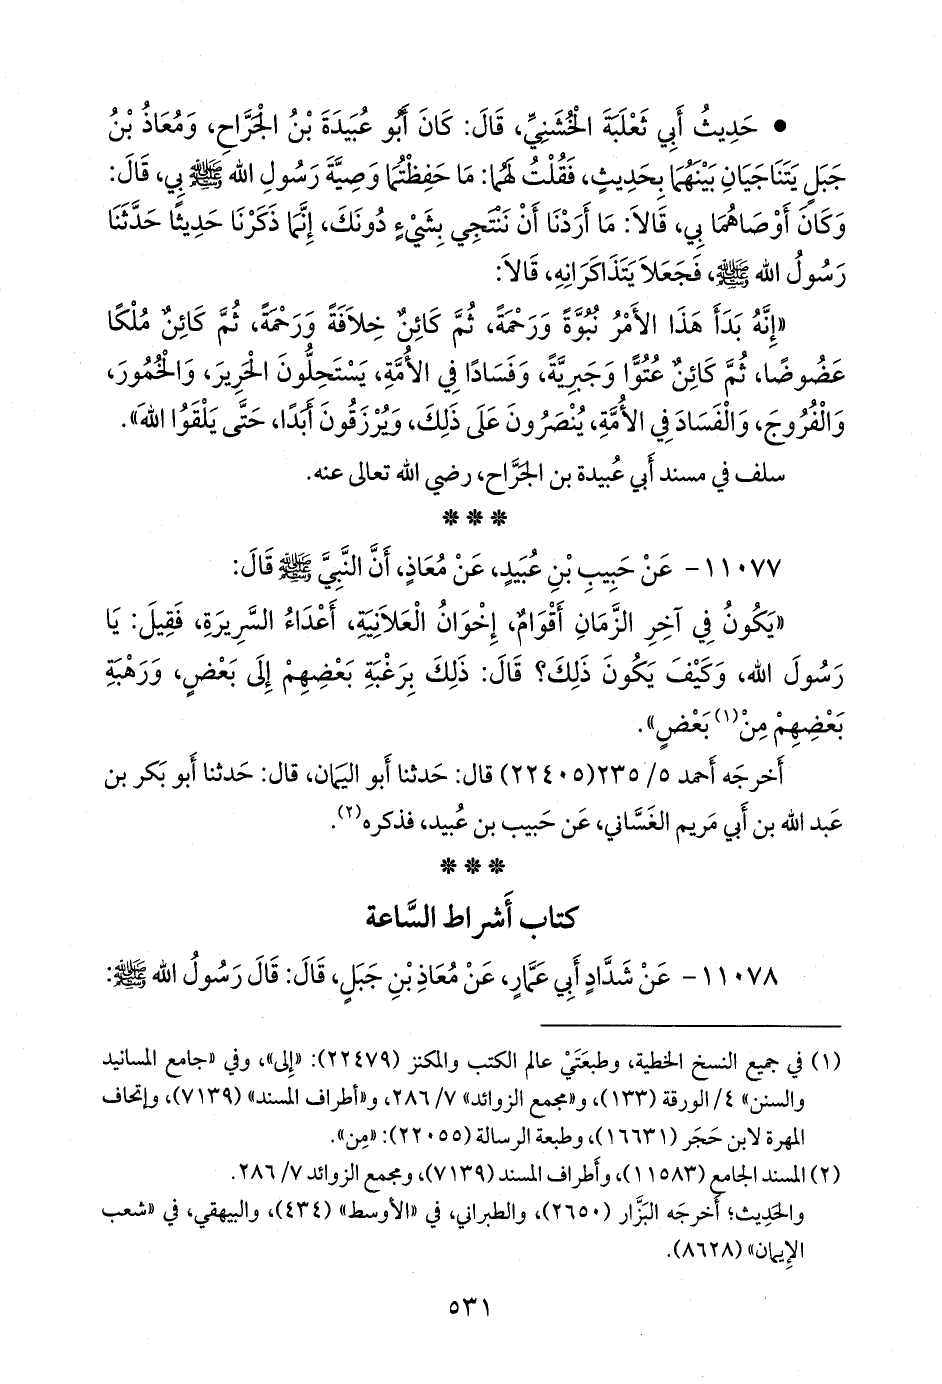 • حَدِيثُ أَبِي ثَعْلَبَةَ الْخُشَنِيِّ، قَالَ: كَانَ أَبُو عُبَيدَةَ بْنُ الْجَرَّاحِ، وَمُعَاذُ بْنُ
جَبَلٍ يَتَنَاجَيَانِ بَيْنَهُمَا بِحَدِيثٍ، فَقُلْتُ لَهُمَا: مَا حَفِظْتُمَا وَصِيَّةَ رَسُولِ الله ﷺ بِي، قَالَ:
وَكَانَ أَوْصَاهُمَا بِي، قَالاَ: مَا أَرَدْنَا أَنْ نَنْتَجِي بِشَيْءٍ دُونَكَ، إِنَّمَا ذَكَرْنَا حَدِيثًا حَدَّثَنَا
رَسُولُ الله ﷺ، فَجَعَلاَ يَتَذَاكَرَانِهِ، قَالاَ:
«إِنَّهُ بَدَأَ هَذَا الأَمْرُ نُبُوَّةً وَرَحْمَةً، ثُمَّ كَائِنٌ خِلاَفَةً وَرَحْمَةً، ثُمَّ كَائِنٌ مُلْكًا
عَضُوضًا، ثُمَّ كَائِنٌ عُتُوًّا وَجَبرِيَّةً، وَفَسَادًا فِي الأُمَّةِ، يَسْتَحِلُّونَ الْحَرِيرَ، وَالْخُمُورَ،
وَالْفُرُوجَ، وَالْفَسَادَ فِي الأُمَّةِ، يُنْصَرُونَ عَلَى ذَلِكَ، وَيُرْزَقُونَ أَبَدًا، حَتَّى يَلْقَوُا اللهَ».
سلف في مسند أَبي عُبيدة بن الجَرَّاح، رضي الله تعالى عنه.
* * *
١١٠٧٧- عَنْ حَبِيبِ بْنِ عُبَيدٍ، عَنْ مُعَاذٍ، أَنَّ النَّبِيَّ ﷺ قَالَ:
«يَكُونُ فِي آخِرِ الزَّمَانِ أَقْوَامٌ، إِخْوَانُ الْعَلاَنِيَةِ، أَعْدَاءُ السَّرِيرَةِ، فَقِيلَ: يَا
رَسُولَ الله، وَكَيْفَ يَكُونُ ذَلِكَ؟ قَالَ: ذَلِكَ بِرَغْبَةِ بَعْضِهِمْ إِلَى بَعْضٍ، وَرَهْبَةِ
بَعْضِهِمْ مِنْ(١) بَعْضٍ».
أَخرجَه أَحمد ٥/ ٢٣٥(٢٢٤٠٥) قال: حَدثنا أَبو اليَمان، قال: حَدثنا أَبو بَكر بن
عَبد الله بن أَبي مَريم الغَسَّاني، عَن حَبيب بن عُبيد، فذكره(٢).
* * *
كتاب أَشراط السَّاعة
١١٠٧٨- عَنْ شَدَّادٍ أَبِي عَمَّارٍ، عَنْ مُعَاذِ بْنِ جَبَلٍ، قَالَ: قَالَ رَسُولُ الله ﷺ:
(١) في جميع النسخ الخطية، وطبعَتَيْ عالم الكتب والمكنز (٢٢٤٧٩): «إلى»، وفي «جامع المسانيد
والسنن» ٤/ الورقة (١٣٣)، و«مجمع الزوائد» ٧/ ٢٨٦، و«أطراف المسند» (٧١٣٩)، وإتحاف
المهرة لابن حَجَر (١٦٦٣١)، وطبعة الرسالة (٢٢٠٥٥): «مِن».
(٢) المسند الجامع (١١٥٨٣)، وأطراف المسند (٧١٣٩)، ومجمع الزوائد ٧/ ٢٨٦.
والحَدِيث؛ أَخرجَه البَزَّار (٢٦٥٠)، والطبراني، في «الأوسط» (٤٣٤)، والبيهقي، في «شعب
الإِيمان» (٨٦٢٨).
٥٣١